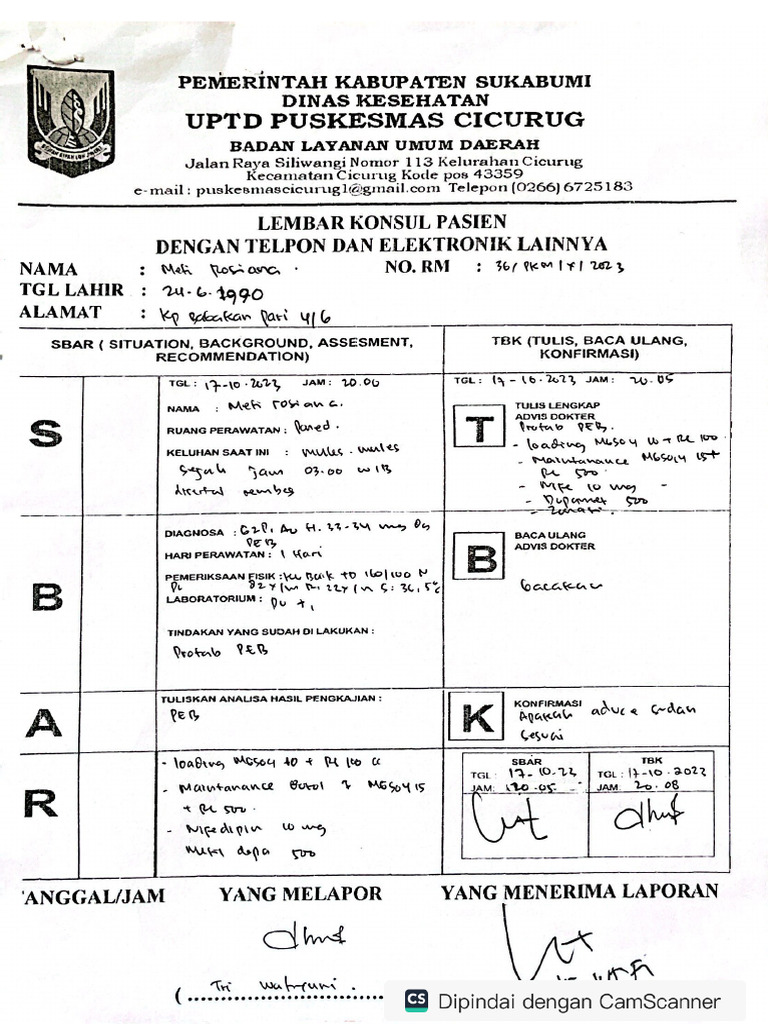 PEMERINTAH KABUPATEN SUKABUMI
DINAS KESEHATAN
UPTD PUSKESMAS CICURUG
BADAN LAYANAN UMUM DAERAH
Jalan Raya Siliwangi Nomor 113 Kelurahan Cicurug
Kecamatan Cicurug Kode pos 43359
e-mail : puskesmascicurug1@gmail.com Telepon (0266) 6725183
LEMBAR KONSUL PASIEN
DENGAN TELPON DAN ELEKTRONIK LAINNYA
NAMA : Meti Rosiana. NO. RM : 36/PKM/X/2023
TGL LAHIR : 24-6-1990
ALAMAT : Kp Babakan Pari 4/6
SBAR ( SITUATION, BACKGROUND, ASSESMENT, RECOMMENDATION)
TBK (TULIS, BACA ULANG, KONFIRMASI)
S
TGL : 17-10-2023 JAM : 20.00
NAMA : Meti rosiana.
RUANG PERAWATAN : Poned.
KELUHAN SAAT INI : mules-mules
Sejak jam 03.00 WIB
T
TGL : 17-10-2023 JAM: 20.05
TULIS LENGKAP
ADVIS DOKTER
Protab PEB.
- loading MGSO4 10 + RL 100
- Maintanance MGSO4 15+
RL 500.
- Nife 10 mg
- Dopamet 500
B
DIAGNOSA : G2P1A0 H. 33-34 mg
PEB
HARI PERAWATAN : 1 Hari
PEMERIKSAAN FISIK : KU Baik TD 160/100 N
82x/m R. 22x/m S: 36,5°C
LABORATORIUM : PU +1
TINDAKAN YANG SUDAH DI LAKUKAN :
Protab PEB
B
BACA ULANG
ADVIS DOKTER
bacakan
A
TULISKAN ANALISA HASIL PENGKAJIAN :
PEB
K
KONFIRMASI
Apakah advice sudah
sesuai
R
- loading MGSO4 10 + RL 100 cc
- Maintanance Botol 2 MGSO4 15
+ RL 500.
- Nifedipin 10 mg
Metil dopa 500
SBAR
TGL : 17-10-23
JAM: 20.05
TBK
TGL : 17-10-2023
JAM 20.08
TANGGAL/JAM YANG MELAPOR YANG MENERIMA LAPORAN
(Tri Wahyuni.
CS Dipindai dengan CamScanner